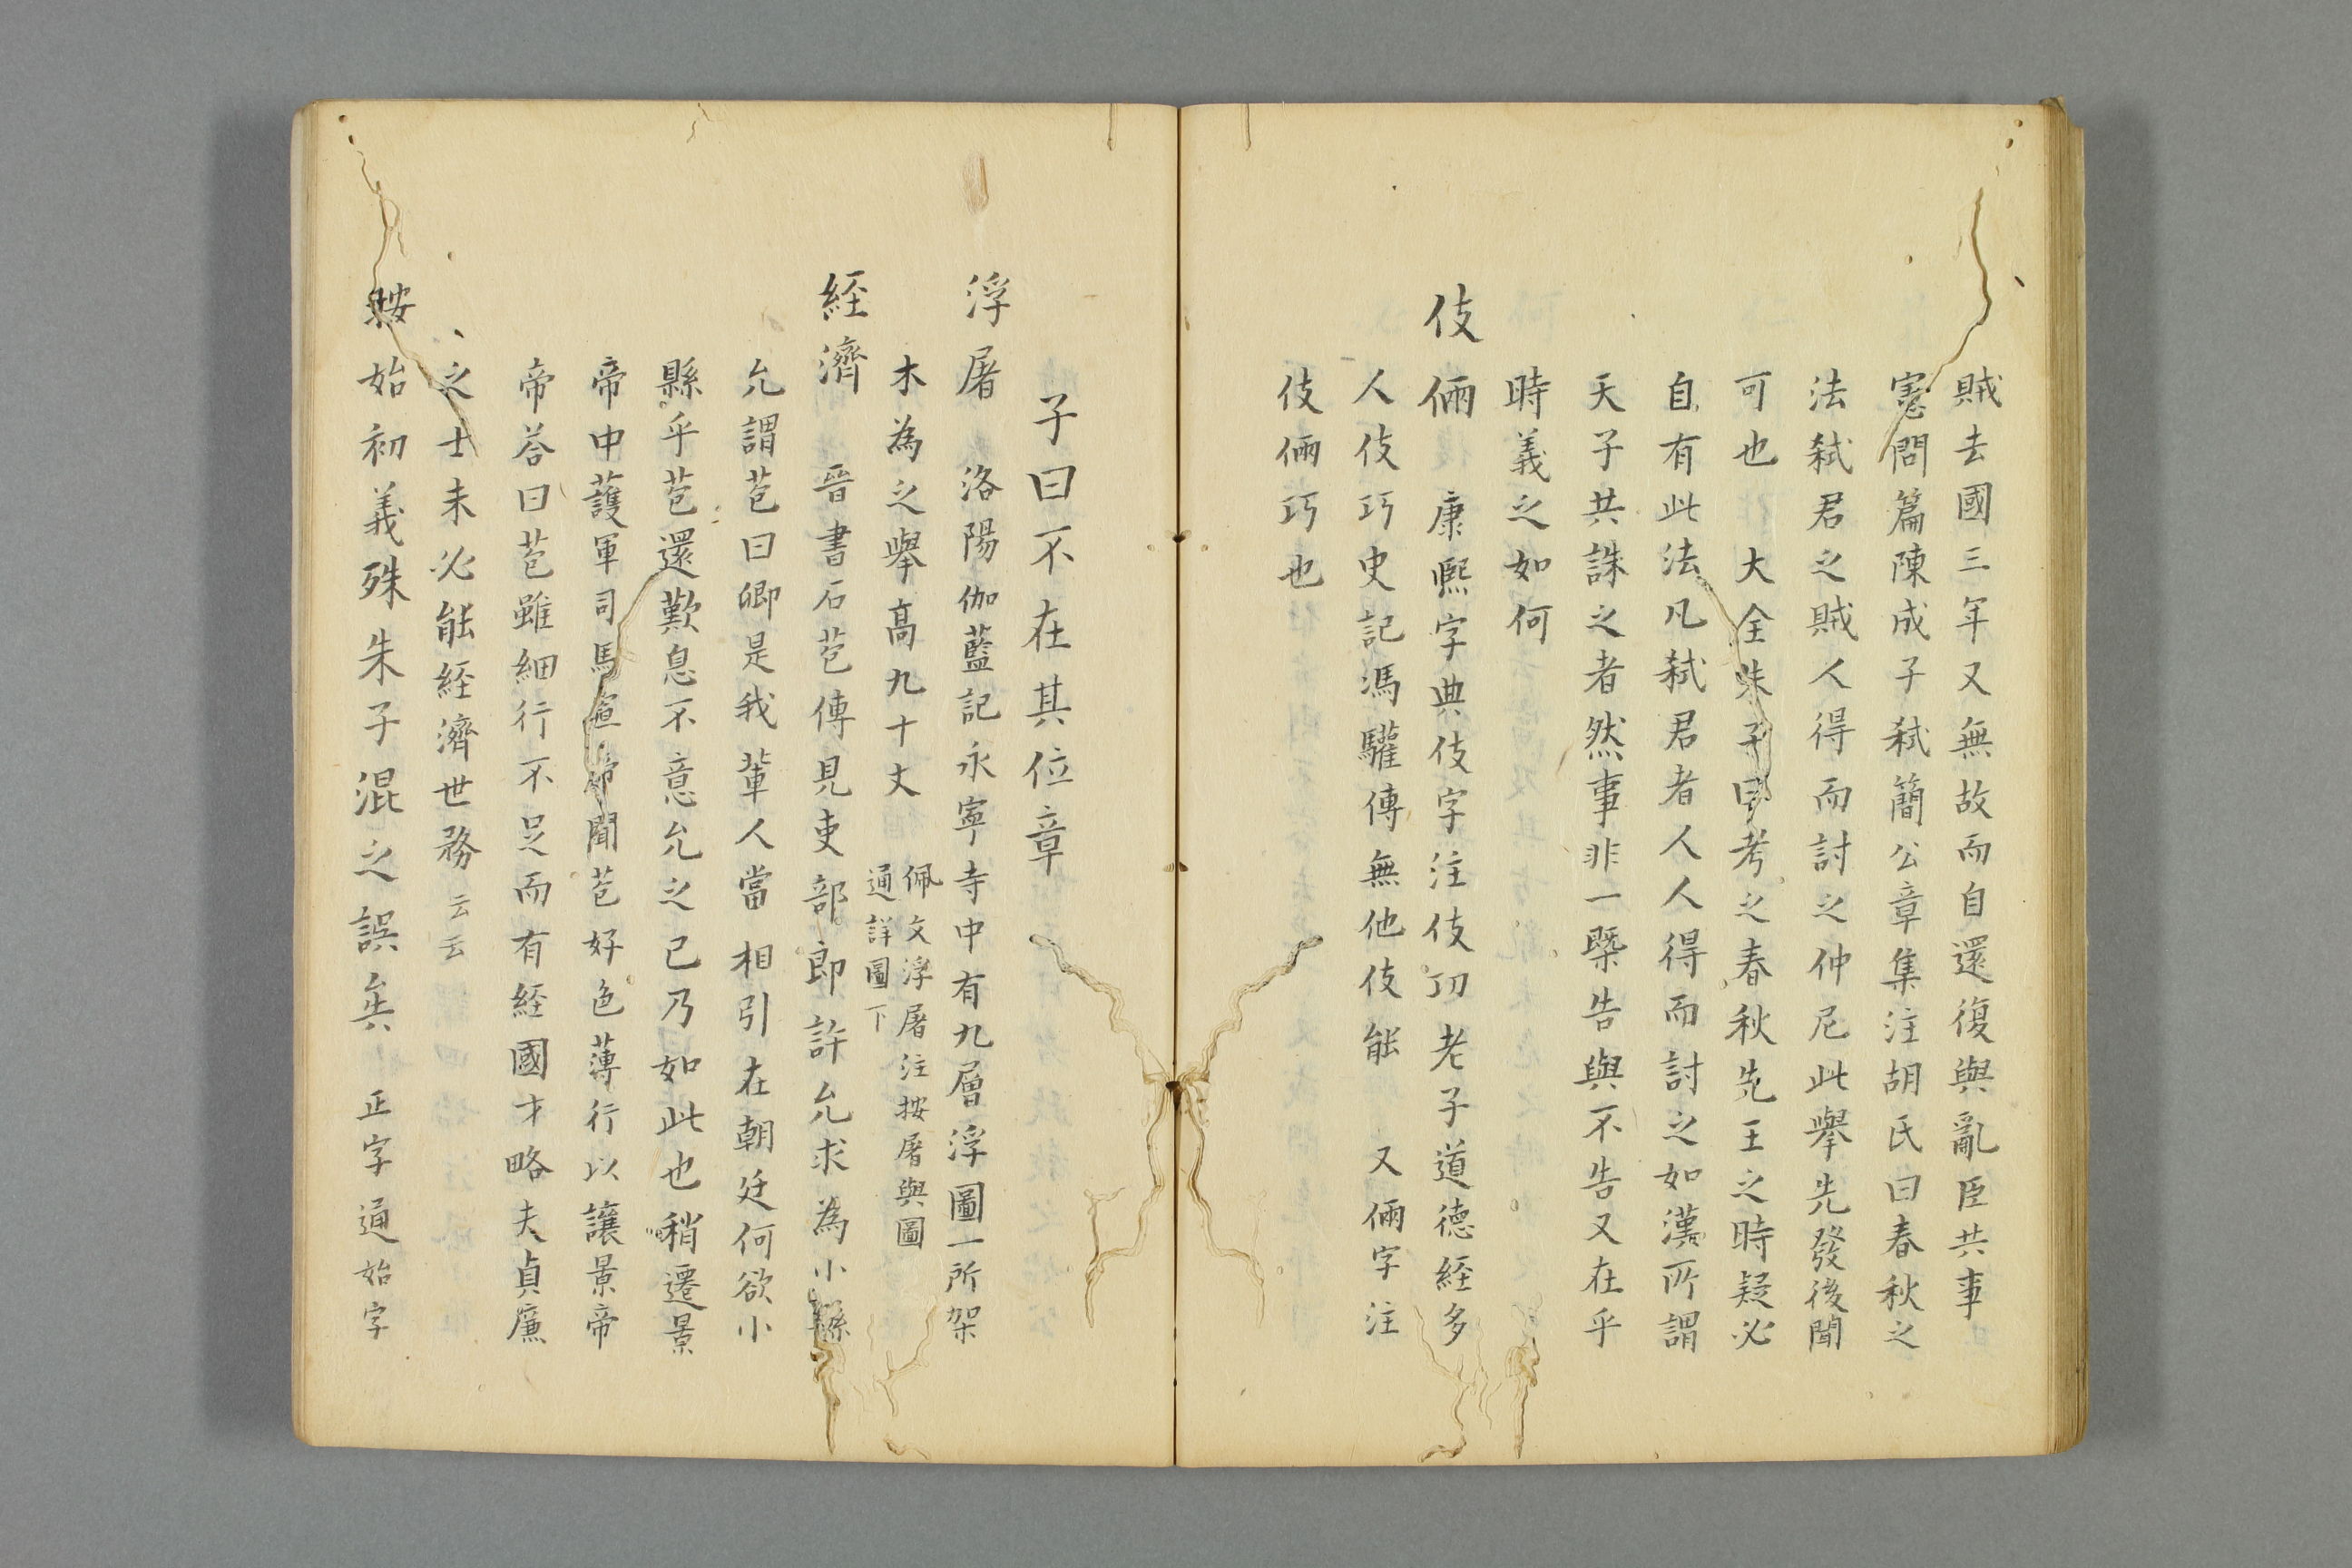 賊去國三年又無故而自還復與亂臣共事
憲問篇陳成子弑簡公章集注胡氏曰春秋之
法弑君之賊人得而討之仲尼此舉先發後聞
可也　大全朱子曰考之春秋先王之時疑必
自有此法凡弑君者人人得而討之如漢所謂
天子共誅之者然事非一槩告與不告又在乎
時義之如何
伎倆　康熙字典伎字注伎㓛老子道德経多
人伎巧史記馮驩傳無他伎能　又倆字注
伎倆巧也
子曰不在其位章
浮屠　洛陽伽藍記永寧寺中有九層浮圖一所架
木為之舉高九十丈
佩文浮屠注按屠與圖
通詳圖下
経濟　晉書石苞傳見吏部郎許允求為小縣
允謂苞曰卿是我輩人當相引在朝廷何欲小
縣乎苞還歎息不意允之已乃如此也稍遷景
帝中護軍司馬宣帝聞苞好色薄行以讓景帝
帝荅曰苞雖細行不足而有経國才略夫貞廉
之士未必能経濟世務云云
始初義殊朱子混之誤矣　正字通始字